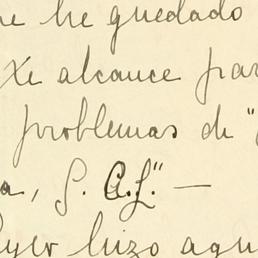 he quedado
alcance par
problemas de "
a, S. A. L." —
Ayer hizo aqu